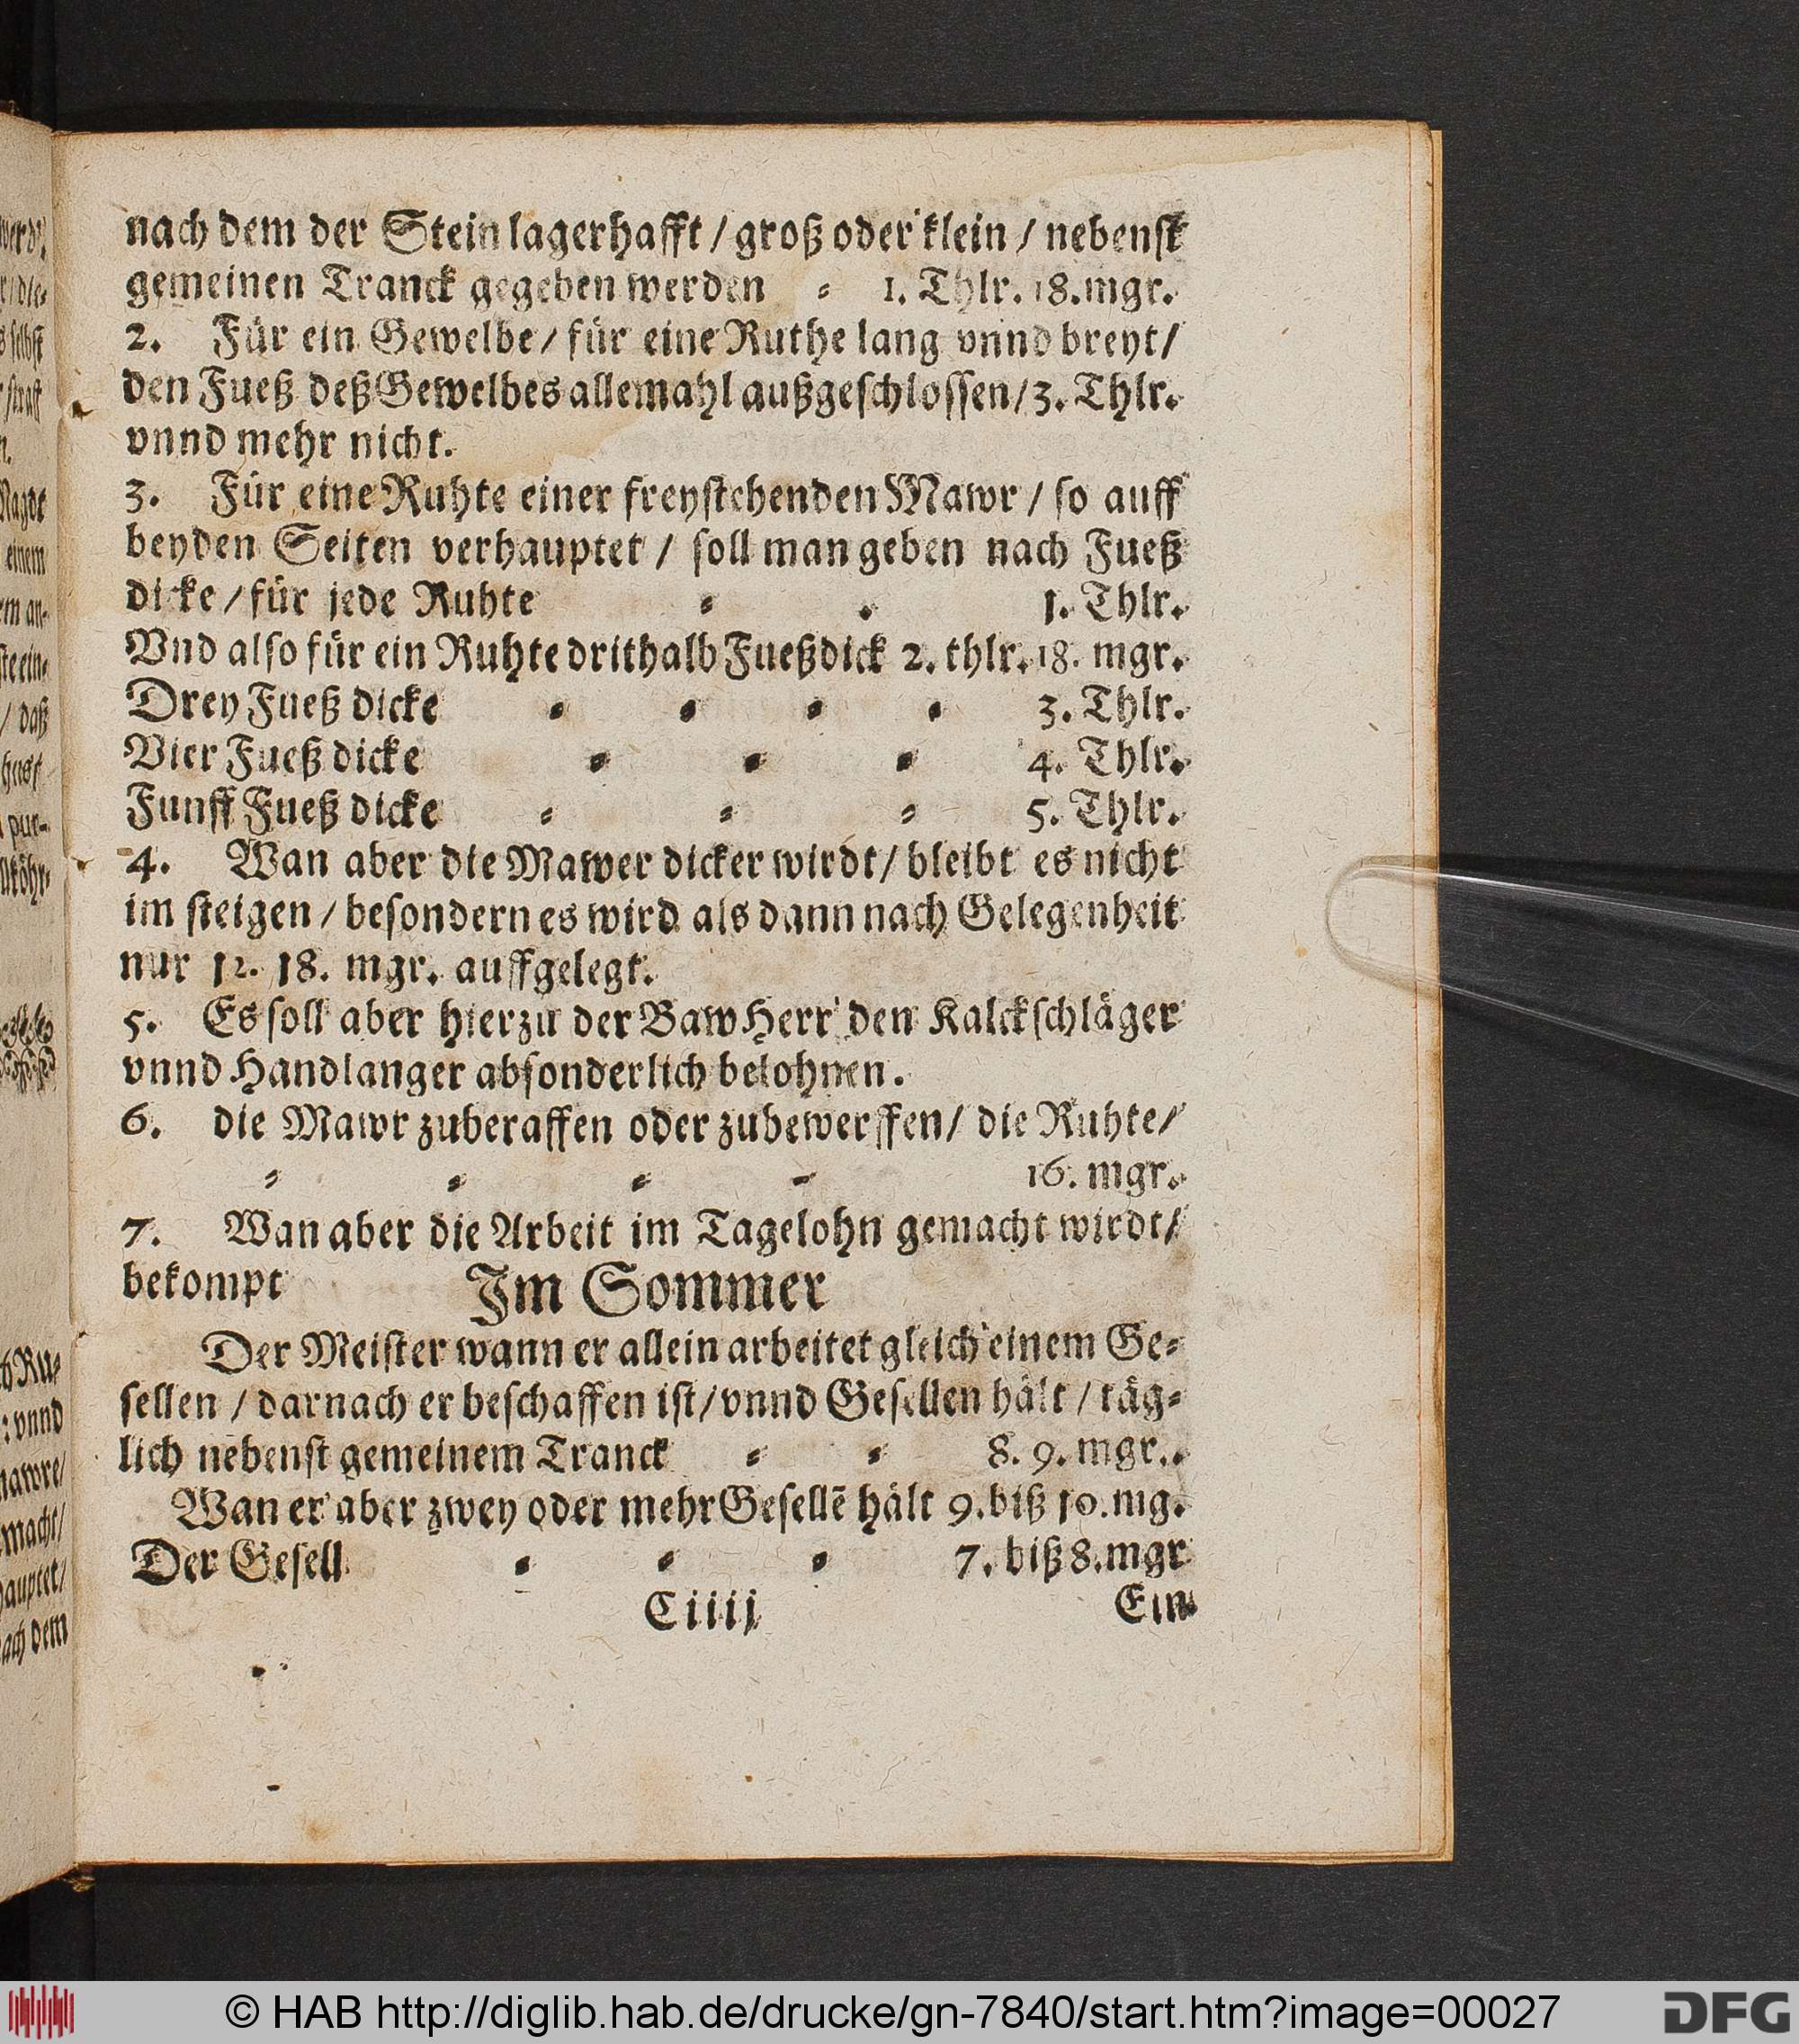 nach dem der Stein lagerhafft / groß oder klein / nebenst
gemeinen Tranck gegeben werden ⸗ 1. Thlr. 18. mgr.
2. Für ein Gewelbe / für eine Ruthe lang vnnd breyt /
den Fueß deß Gewelbes allemahl außgeschlossen / 3. Thlr.
vnnd mehr nicht.
3. Für eine Ruhte einer freystehenden Mawr / so auff
beyden Seiten verhauptet / soll man geben nach Fueß
dicke / für jede Ruhte ⸗ ⸗ 1. Thlr.
Vnd also für ein Ruhte drithalb Fueß dick 2. thlr. 18. mgr.
Drey Fueß dicke ⸗ ⸗ ⸗ ⸗ 3. Thlr.
Vier Fueß dicke ⸗ ⸗ ⸗ 4. Thlr.
Funff Fueß dicke ⸗ ⸗ ⸗ 5. Thlr.
4. Wan aber die Mawer dicker wirdt / bleibt es nicht
im steigen / besondern es wird als dann nach Gelegenheit
nur 12. 18. mgr. auffgelegt.
5. Es soll aber hierzu der Baw Herr den Kalckschläger
vnnd Handlanger absonderlich belohnen.
6. die Mawr zuberaffen oder zubewerffen / die Ruhte /
⸗ ⸗ ⸗ ⸗ 16. mgr.
7. Wan aber die Arbeit im Tagelohn gemacht wirdt /
bekompt Im Sommer
Der Meister wann er allein arbeitet gleich einem Ge⸗
sellen / darnach er beschaffen ist / vnnd Gesellen hält / täg⸗
lich nebenst gemeinem Tranck ⸗ ⸗ 8. 9. mgr..
Wan er aber zwey oder mehr Gesellẽ hält 9. biß 10. mg.
Der Gesell ⸗ ⸗ ⸗ 7. biß 8. mgr
Ciiij Ein
© HAB http://diglib.hab.de/drucke/gn-7840/start.htm?image=00027
DFG